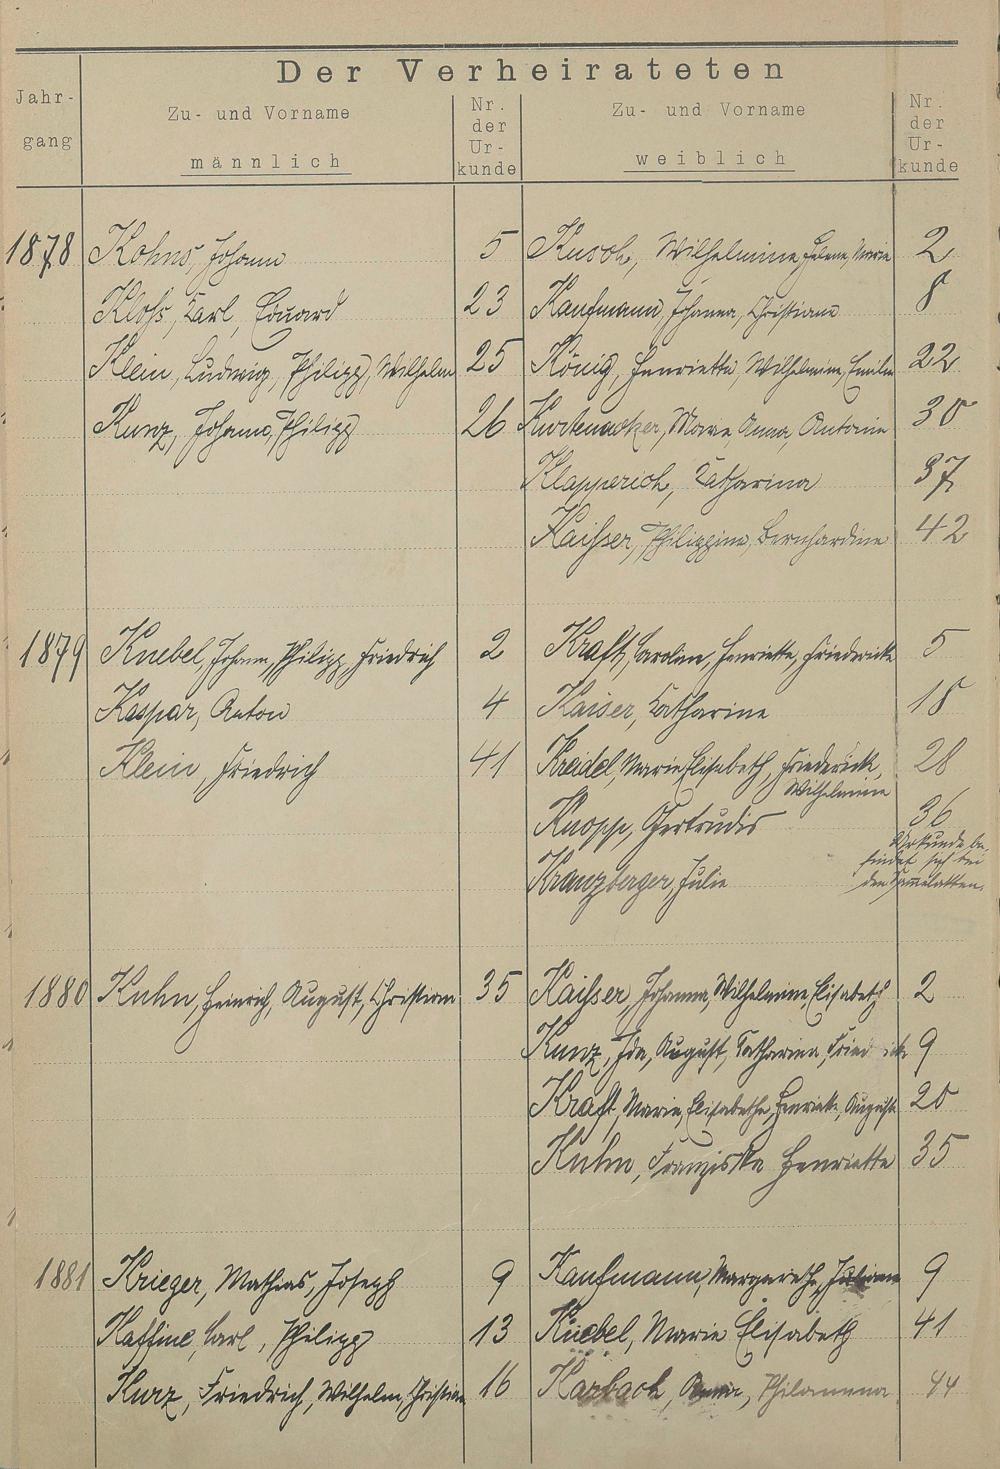 Der Verheirateten
Jahr-
gang
Zu- und Vorname
männlich
Nr.
der
Ur-
kunde
Zu- und Vorname
weiblich
Nr.
der
Ur-
kunde
1878 Kohns, Johann 5 Kusch, Wilhelmine, Helene, Maria 2
Kloss, Karl, Eduard 23 Kaufmann, Johanna, Christiane 8
Klein, Ludwig, Philipp, Wilhelm 25 König, Henriette, Wilhelmine, Emilie 22
Kunz, Johann, Philipp 26 Kurtenacker, Maria, Anna, Antonie 30
Klapperich, Katharina 37
Kaisser, Philippine, Bernhardine 42
1879 Knebel, Johann, Philipp, Friedrich 2 Kraft, Caroline, Henriette, Friedericke 5
Kaspar, Anton 4 Kaiser, Katharine 18
Klein, Friedrich 41 Kreidel, Marie Elisabeth, Friedericke, 28
Wilhelmine
Knopp, Gertrudis 36
Urkunde be-
findet sich bei
den Sammelakten.
Kranzberger, Julie
1880 Kuhn, Heinrich, August, Christian 35 Kaisser, Johanna, Wilhelmine, Elisabeth 2
Kunz, Ida, August, Katharina, 9
Kraft, Marie, Elisabethe, Henriette, Auguste 20
Kuhn, Franziska Henriette 35
1881 Krieger, Mathias, Joseph 9 Kaufmann, Margarethe, Juliane 9
Kaffine, Carl, Philipp 13 Knebel, Marie Elisabeth 41
Kurz, Friedrich, Wilhelm, Christian 16 Karbach, Anna, Philomena 44